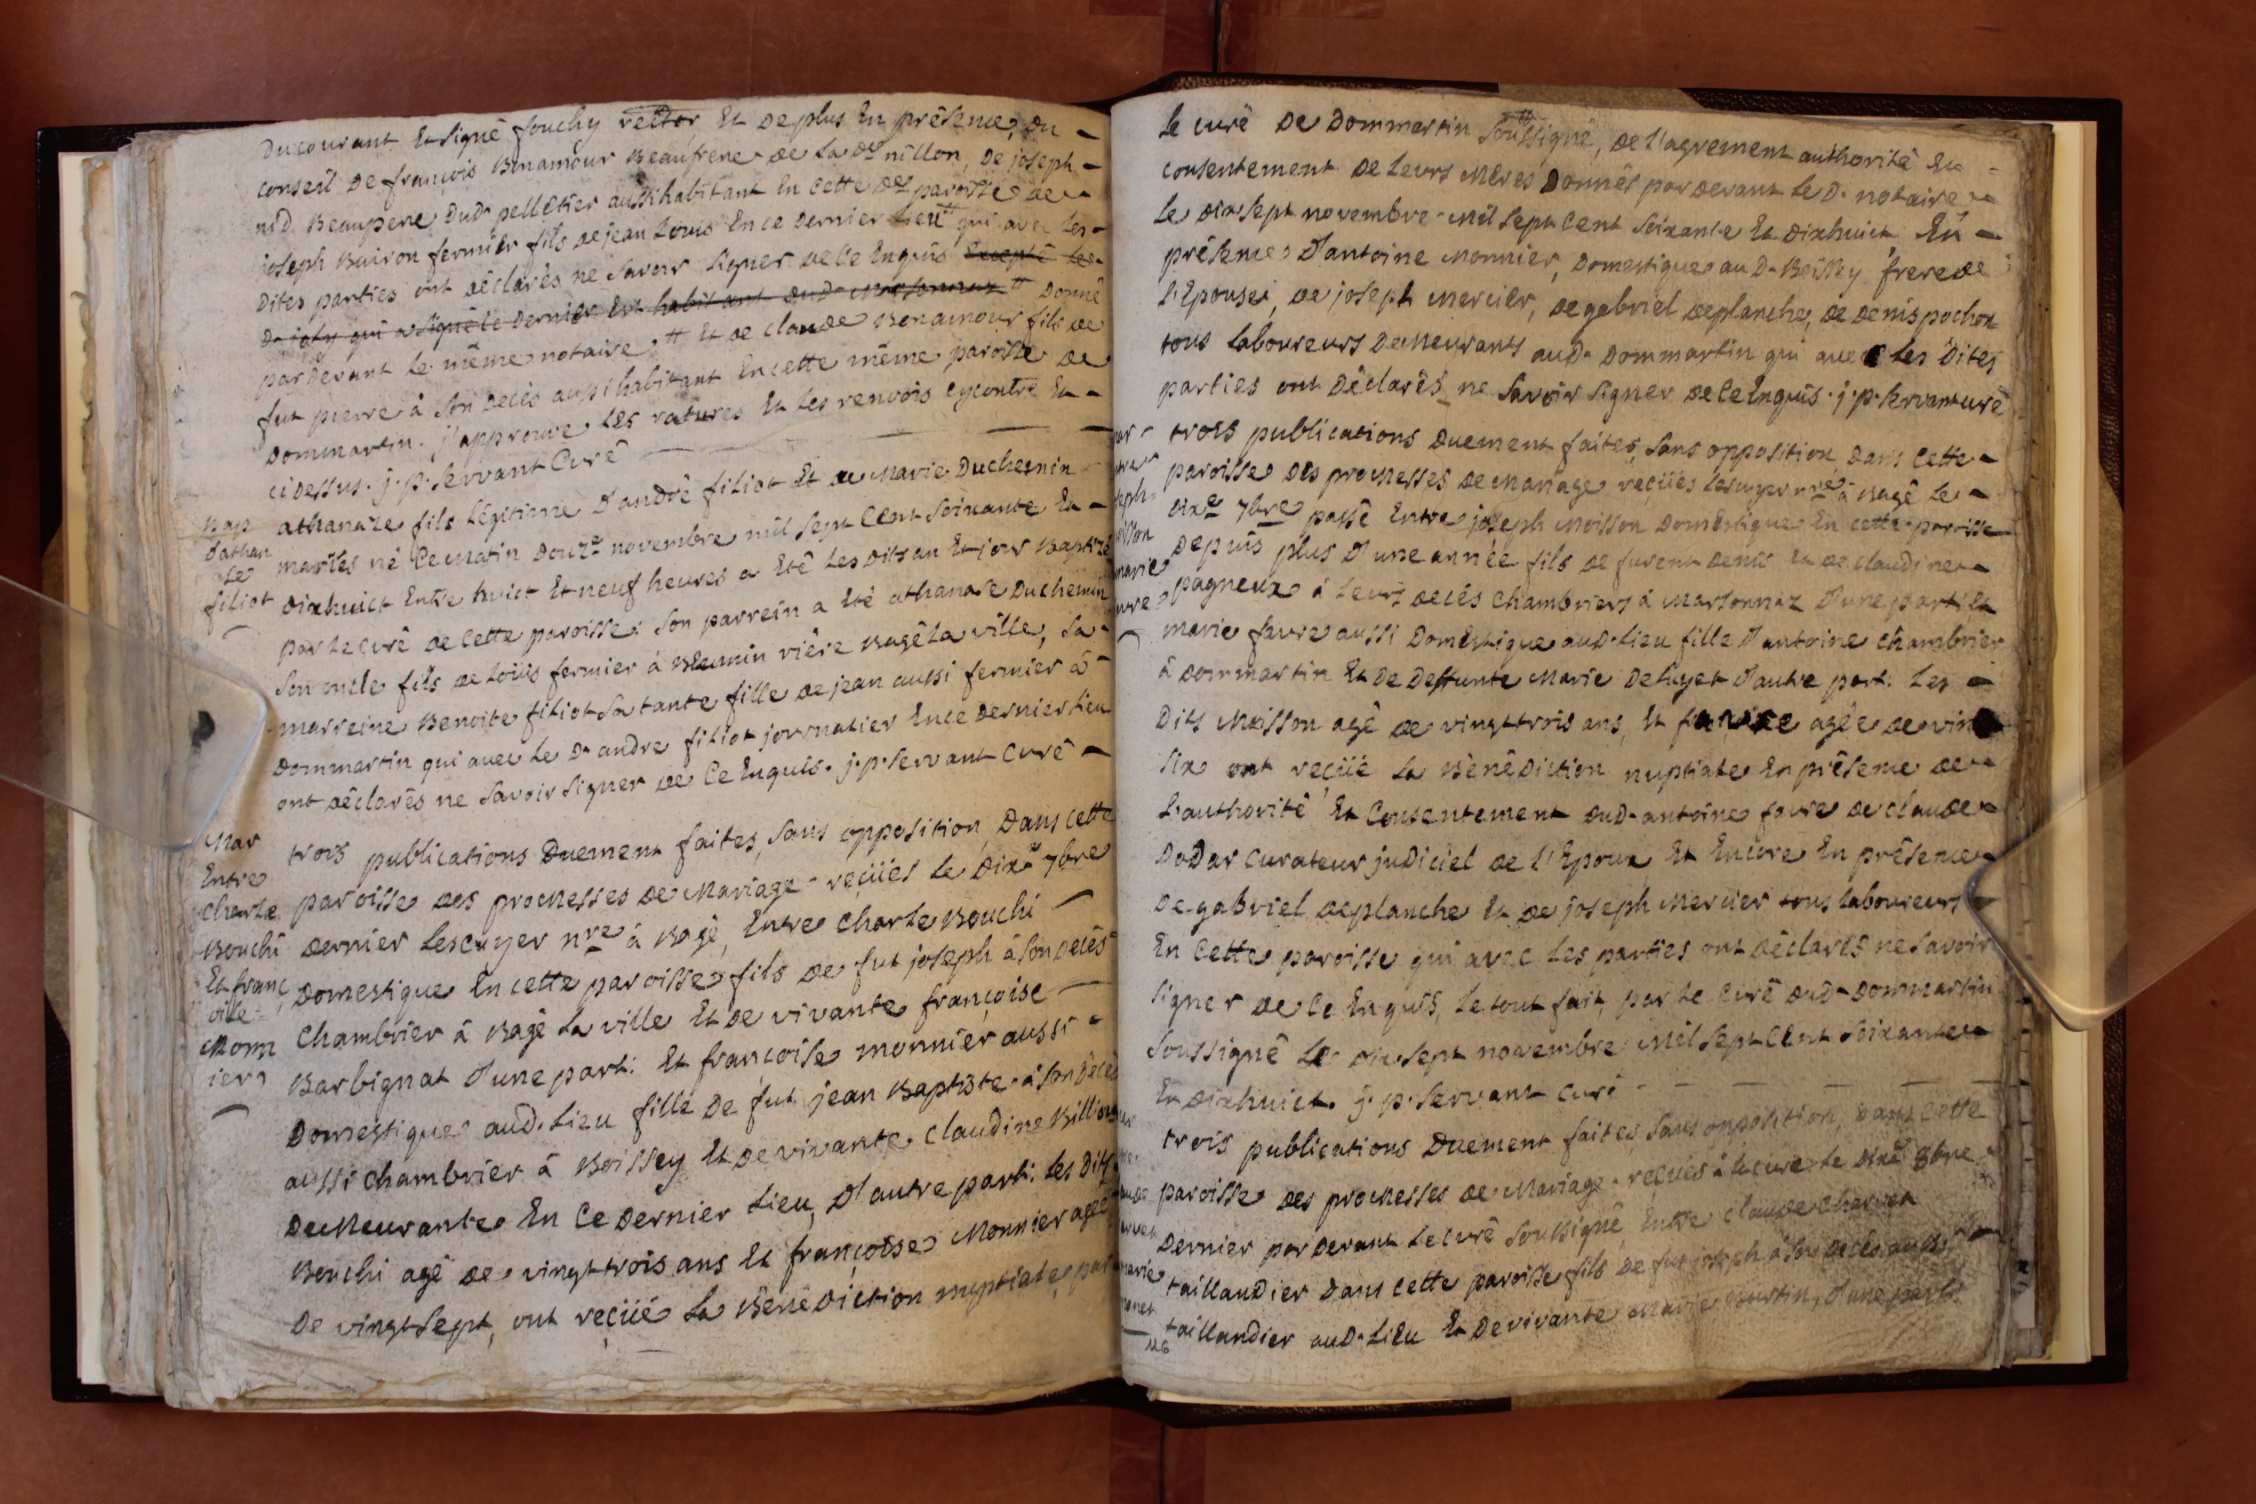 Ducourant Et signé fouchy rector Et deplus En présence, du
conseil De françois Benamour Beaufrere de La dte nillon, De joseph
nid. Beaupere Dud. pelletier aussi habitant En cette de paroisse de
joseph Buiron fermier fils de jean Louis En ce dernier Lieu qui avec Les
Dites parties ont déclarés ne savoir signer de ce Enquis Excepté Le
D. joly qui a signé le Dernier Est habitant dud. Marsonnaz Donné
par devant Le même notaire. Et de claude Benamour fils de
fut pierre à son décès aussi habitant En cette même paroisse de
Dommartin. j'approuve Les ratures Et Les renvois cycontre Et
cidessus. j. p. servant Curé
Bap
d'athan
ase
filiot
athanaze fils Légitime D'andré filiot Et de Marie Duchesnin
mariés né Ce matin Douze novembre mil sept Cent soixante Et
dixhuict Entre huict Et neuf heures a Eté Les Dits an Et jour Baptizé
par Le curé de cette paroisse. son parrein a Eté athanase Duchemin
son oncle fils de Louis fermier à Blemnin riére Bagé La ville, sa
marreine Benoite filiot sa tante fille de jean aussi fermier à
Dommartin qui avec Le D. andre filiot journalier En ce dernier Lieu
ont déclarés ne savoir signer de ce Enquis. j. p. servant Curé
Mar
Entre
charle
Bouchi
Et franc
oise
Monn
ier
trois publications Duement faites, sans opposition, Dans cette
paroisse des promesses de Mariage reçüés Le Dixe 7bre
dernier Lescuyer nre à Bagé, Entre charle Bouchi
Domestique En cette paroisse fils de fut joseph à son décès
Chambrier à Bagé La ville Et de vivante françoise
Barbignat D'une part. Et françoise monnier aussi
Domestique aud. Lieu fille De fut jean Baptiste à son décès
aussi chambrier à Boissey Et de vivante claudine Billion
Demeurante En ce dernier Lieu, D'autre part. Les Dits
Bouchi agé de vingt trois ans Et françoise Monnier agée
De vingt sept, ont reçüé La Bénédiction nuptiale, par
Le curé De Dommartin soussigné, de L'agrement authorité Et
consentement de Leurs Meres Donnés par devant Le D. notaire
Le dix sept novembre mil sept Cent soixante Et dixhuict En
présence D'antoine Monnier, Domestique au D. Boissey frere de
L'Epouse, de joseph Mercier, de gabriel deplanche, de denis pochon
tous Laboureurs Demeurants aud. Dommartin qui avec Les Dites
parties ont Déclarés ne savoir signer de ce Enquis. j. p. servant curé
trois publications Duement faites, sans opposition, Dans cette
paroisse des promesses de Mariage reçüés Lescuyer nre à Bagé Le
dixe 7bre passé Entre joseph Moisson Domestique En cette paroisse
Depuis plus D'une année fils de furent denis Et de claudine
pagneux à Leurs décés chambriers à Marsonnaz D'une part Et
marie favre aussi Domestique aud. Lieu fille D'antoine chambrier
à Dommartin Et de Deffunte Marie Deluyet D'autre part. Les
Dits Moisson agé de vingt trois ans, Et favre agée de vingt
six ont reçüé La Bénédiction nuptiale En présence de
L'authorité Et Consentement dud. antoine favre de claude
DoDar curateur judiciel de L'Epoux Et Encore En présence
De gabriel deplanche Et de joseph Mercier tous Laboureurs
En cette paroisse qui avec Les parties ont déclarés ne savoir
signer de ce Enquis, Le tout fait par Le Curé dud. Dommartin
soussigné Le dix sept novembre Mil sept Cent soixante
Et dixhuict. j. p. servant Curé
trois publications Duement faites, sans opposition, Dans cette
paroisse des promesses de Mariage reçüés à la cure Le dixe 8bre
Dernier par devant Le curé soussigné Entre claude charvet
taillandier Dans cette paroisse fils De fut joseph à son décés aussi
taillandier aud. Lieu Et De vivante Marie Burtin, D'une part.